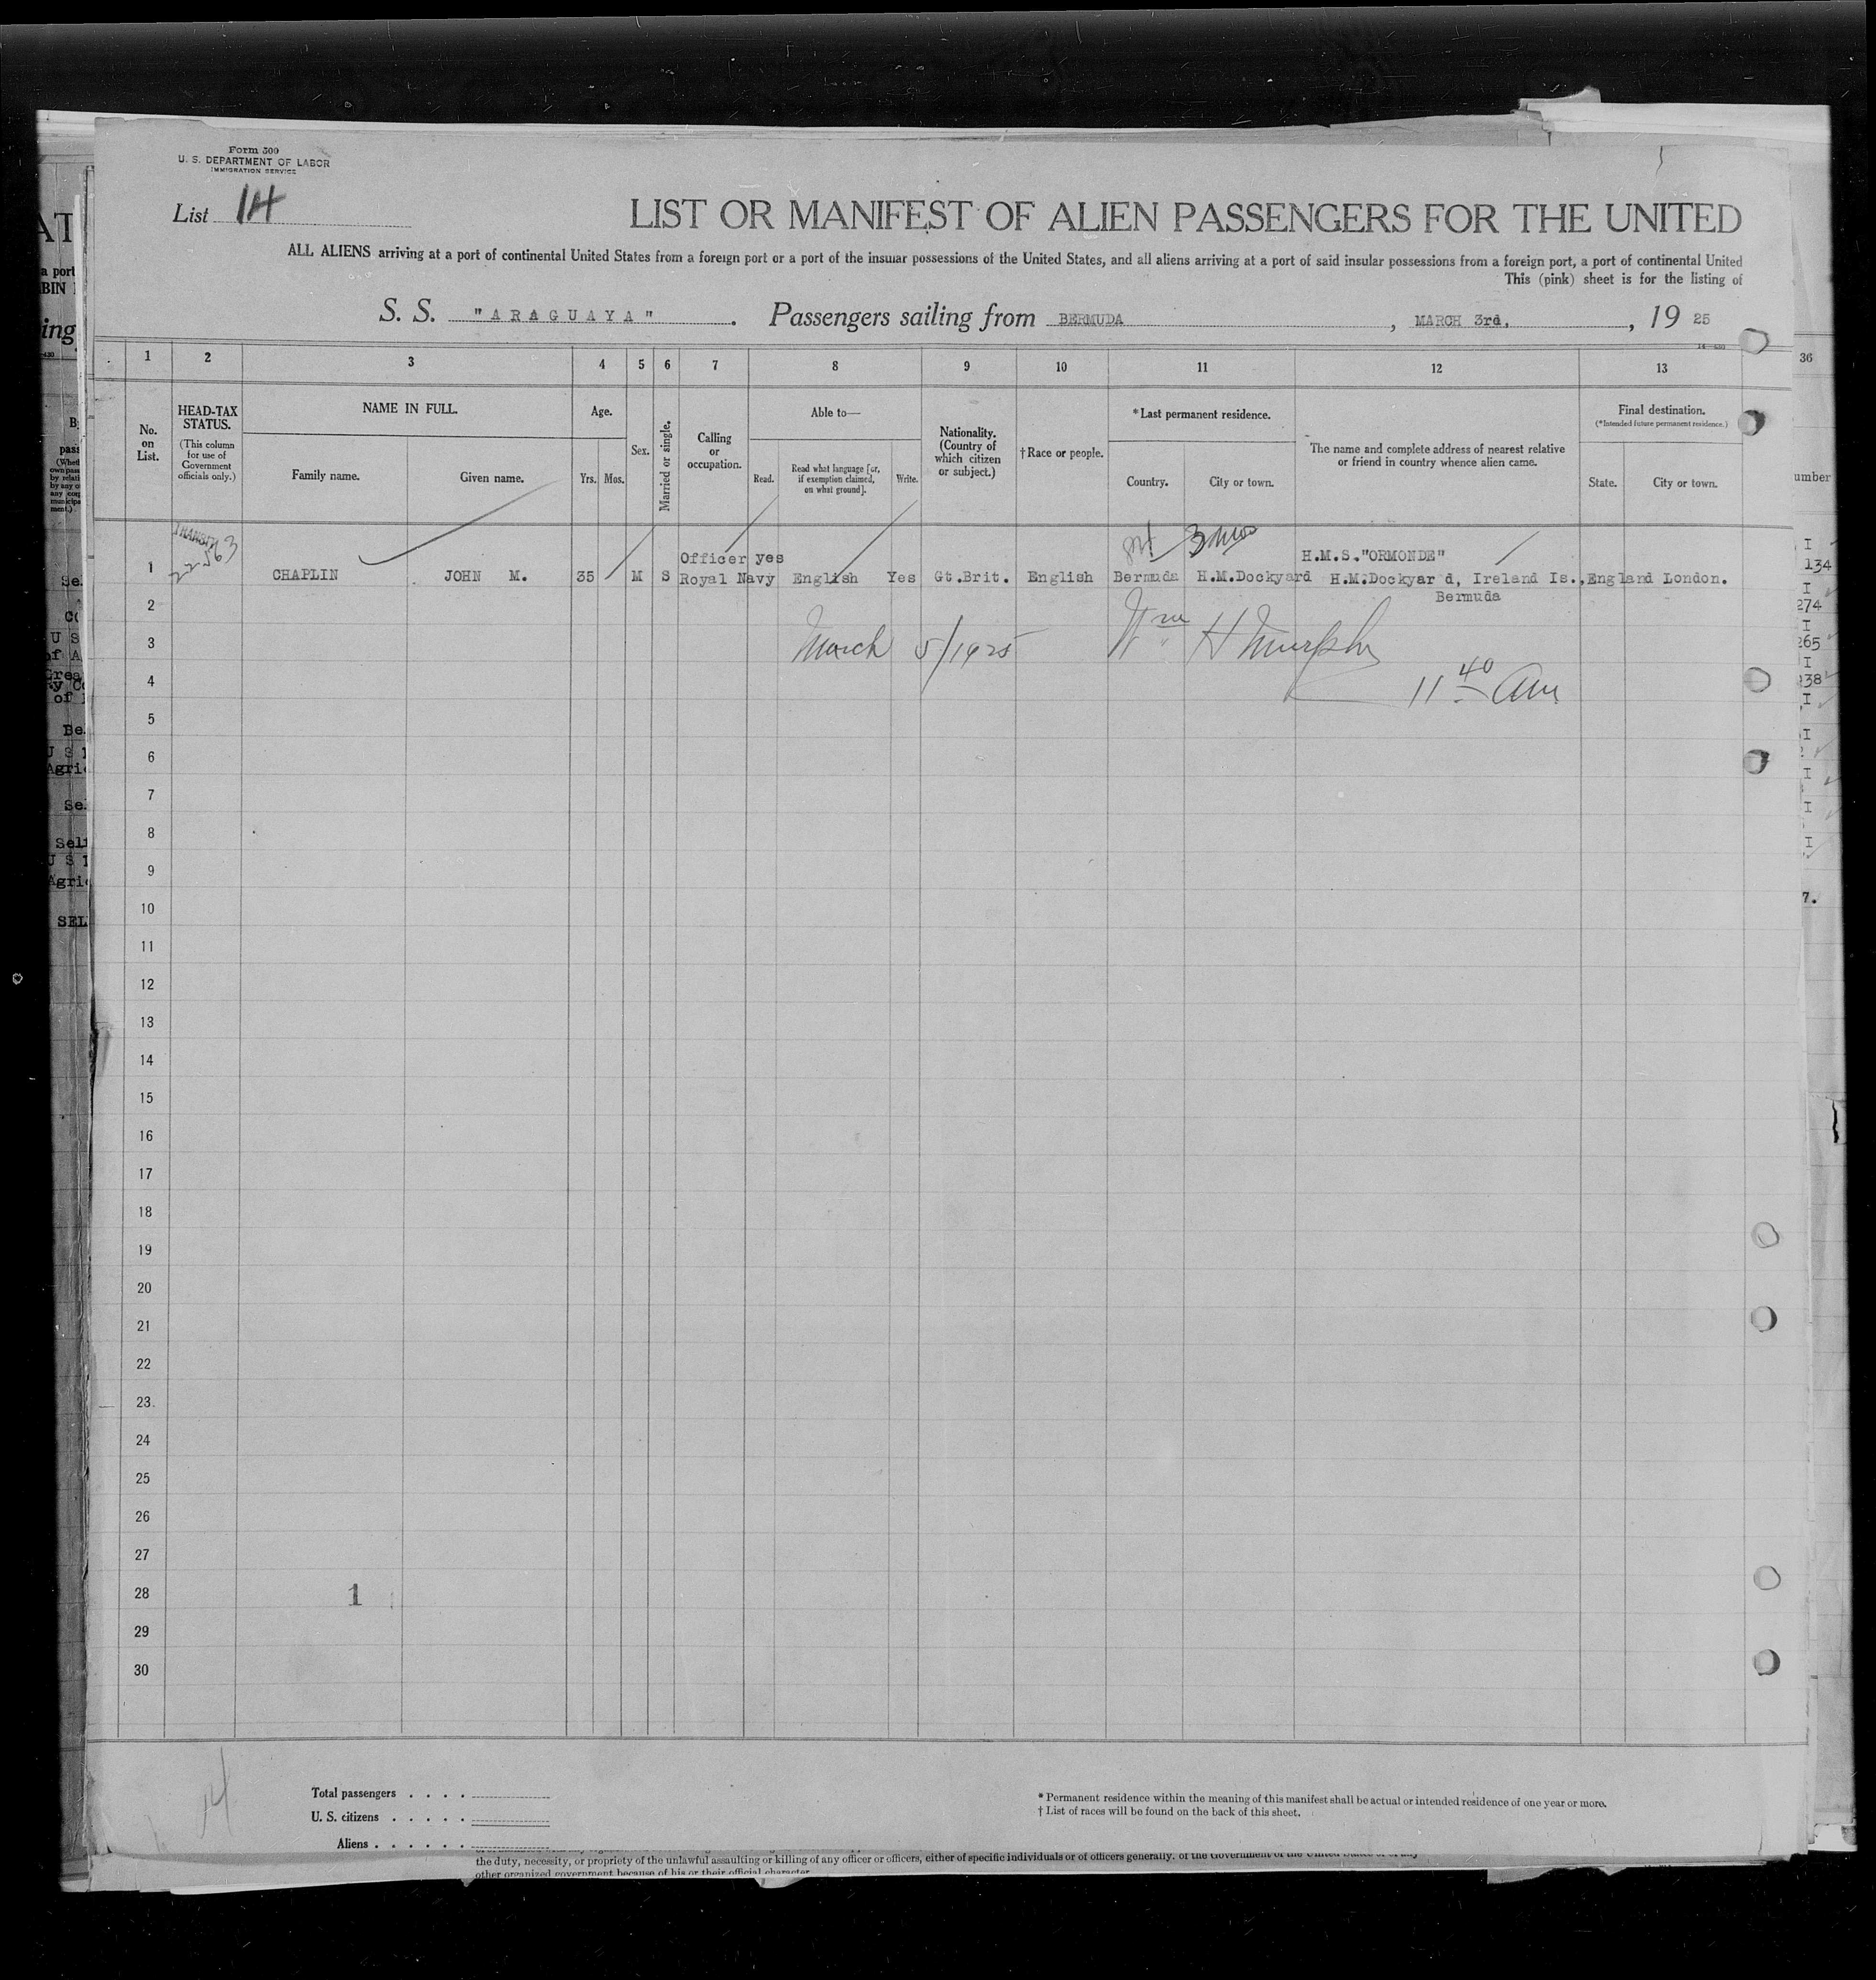 Form 500
U. S. DEPARTMENT OF LABOR
IMMIGRATION SERVICE
List 14
LIST OR MANIFEST OF ALIEN PASSENGERS FOR THE UNITED
ALL ALIENS arriving at a port of continental United States from a foreign port or a port of the insular possessions of the United States, and all aliens arriving at a port of said insular possessions from a foreign port, a port of continental United
This (pink) sheet is for the listing of
S. S. "ARAGUAYA". Passengers sailing from BERMUDA, MARCH 3rd, , 19 25
1 2 3 4 5 6 7 8 9 10 11 12 13
No. on List.
HEAD-TAX STATUS.
(This column for use of Government officials only.)
NAME IN FULL.
Family name.
Given name.
Age.
Yrs.
Mos.
Sex.
Married or single.
Calling or occupation.
Able to—
Read.
Read what language [or, if exemption claimed, on what ground].
Write.
Nationality. (Country of which citizen or subject.)
†Race or people.
*Last permanent residence.
Country.
City or town.
The name and complete address of nearest relative or friend in country whence alien came.
Final destination.
(*Intended future permanent residence.)
State.
City or town.
TRANSIT
22563
3 mos
Officer yes H.M.S."ORMONDE"
1 CHAPLIN JOHN M. 35 M S Royal Navy English Yes Gt.Brit. English Bermuda H.M.Dockyard H.M.Dockyar d, Ireland Is., England London.
Bermuda
2
3 March 5/1925 Wm H Murphy
4 11 40 am
5
6
7
8
9
10
11
12
13
14
15
16
17
18
19
20
21
22
23
24
25
26
27
28 1
29
30
14
Total passengers . . . .
U. S. citizens . . . . .
Aliens . . . . . .
* Permanent residence within the meaning of this manifest shall be actual or intended residence of one year or more.
† List of races will be found on the back of this sheet.
the duty, necessity, or propriety of the unlawful assaulting or killing of any officer or officers, either of specific individuals or of officers generally, of the Government of the United States or of any
other organized government because of his or their official character